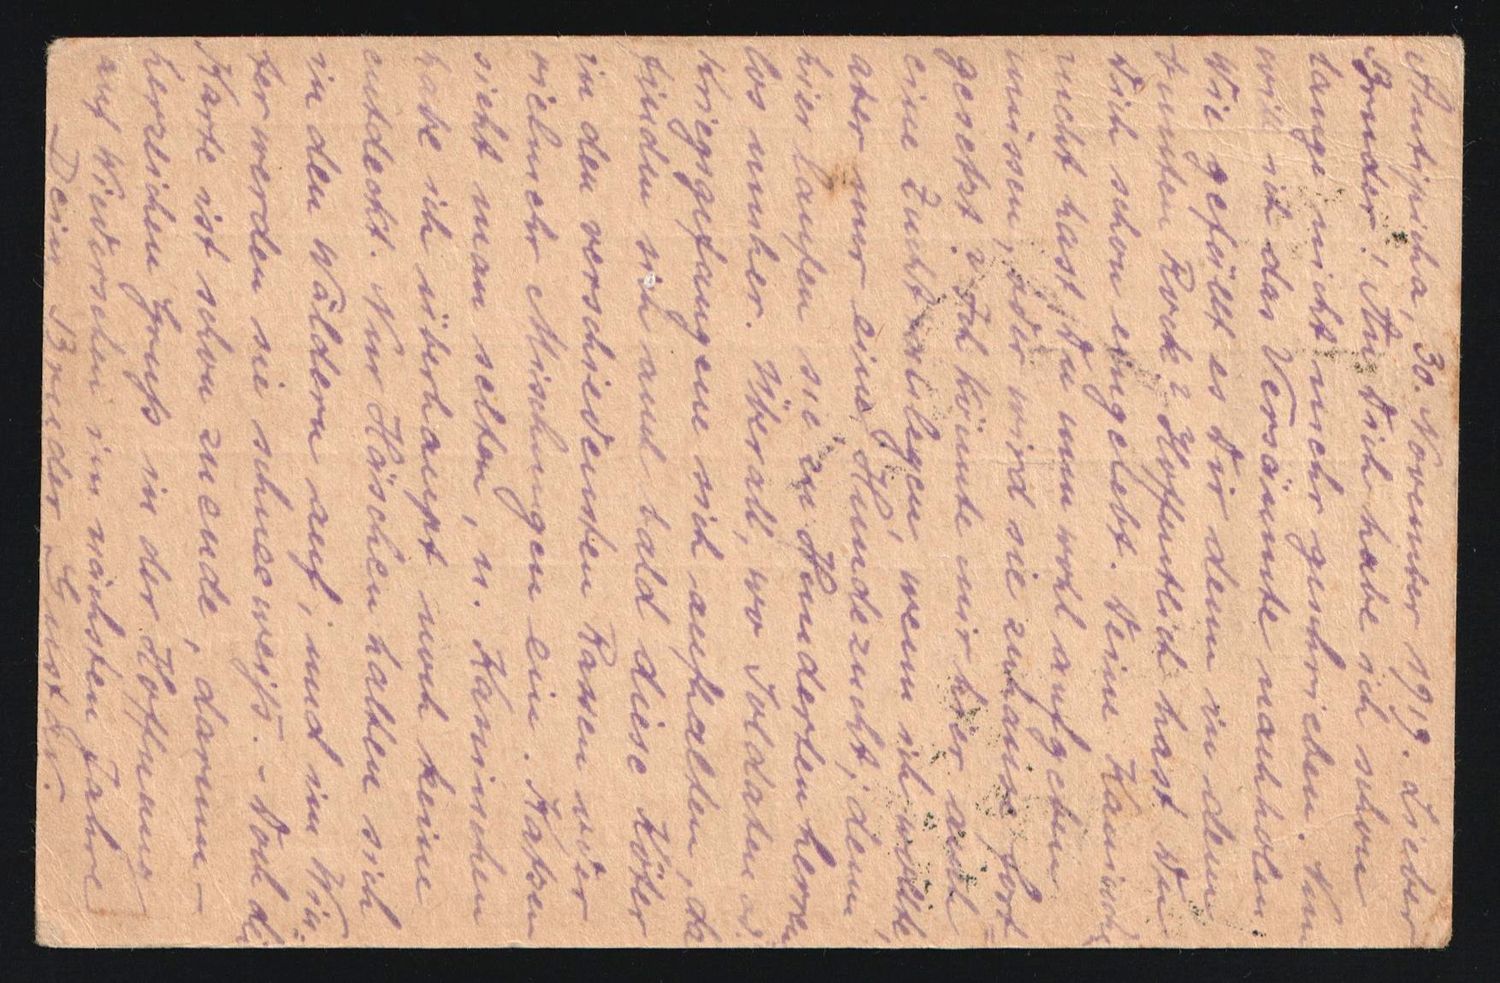 Antipicha, 30. November 1919. Lieber
Bruder! An Dich habe ich schon
lange nicht mehr geschrieben. Nun
will ich das Versäumte nachholen
Wie gefällt es Dir denn in dem
bunten Rock? Hoffentlich hast Du
Dich schon eingelebt. Deine Kaninch
zucht hast Du nun wohl aufgeben
müssen, oder wird sie zuhause fort
gesetzt? Ich könnte mir hier auch
eine Zucht anlegen, wenn ich wollte,
aber nur eine Hundezucht; denn
hier laufen sie zu Hunderten herren
los umher. Überall, wo Soldaten o.
Kriegsgefangene sich aufhalten, da
finden sich auch bald diese Köter
in den verschiedensten Rassen oder
vielmehr Mischungen ein. Katzen
sieht man selten, u. Kaninchen
habe ich überhaupt noch keine
entdeckt. Nur Häschen halten sich
in den Wäldern auf, und im Win
ter werden sie schneeweiß. - Doch di
Karte ist schon zuende, darum -
herzlichen Gruß in der Hoffnung
auf Wiedersehen im nächsten Jahre
Dein Bruder Gustav.